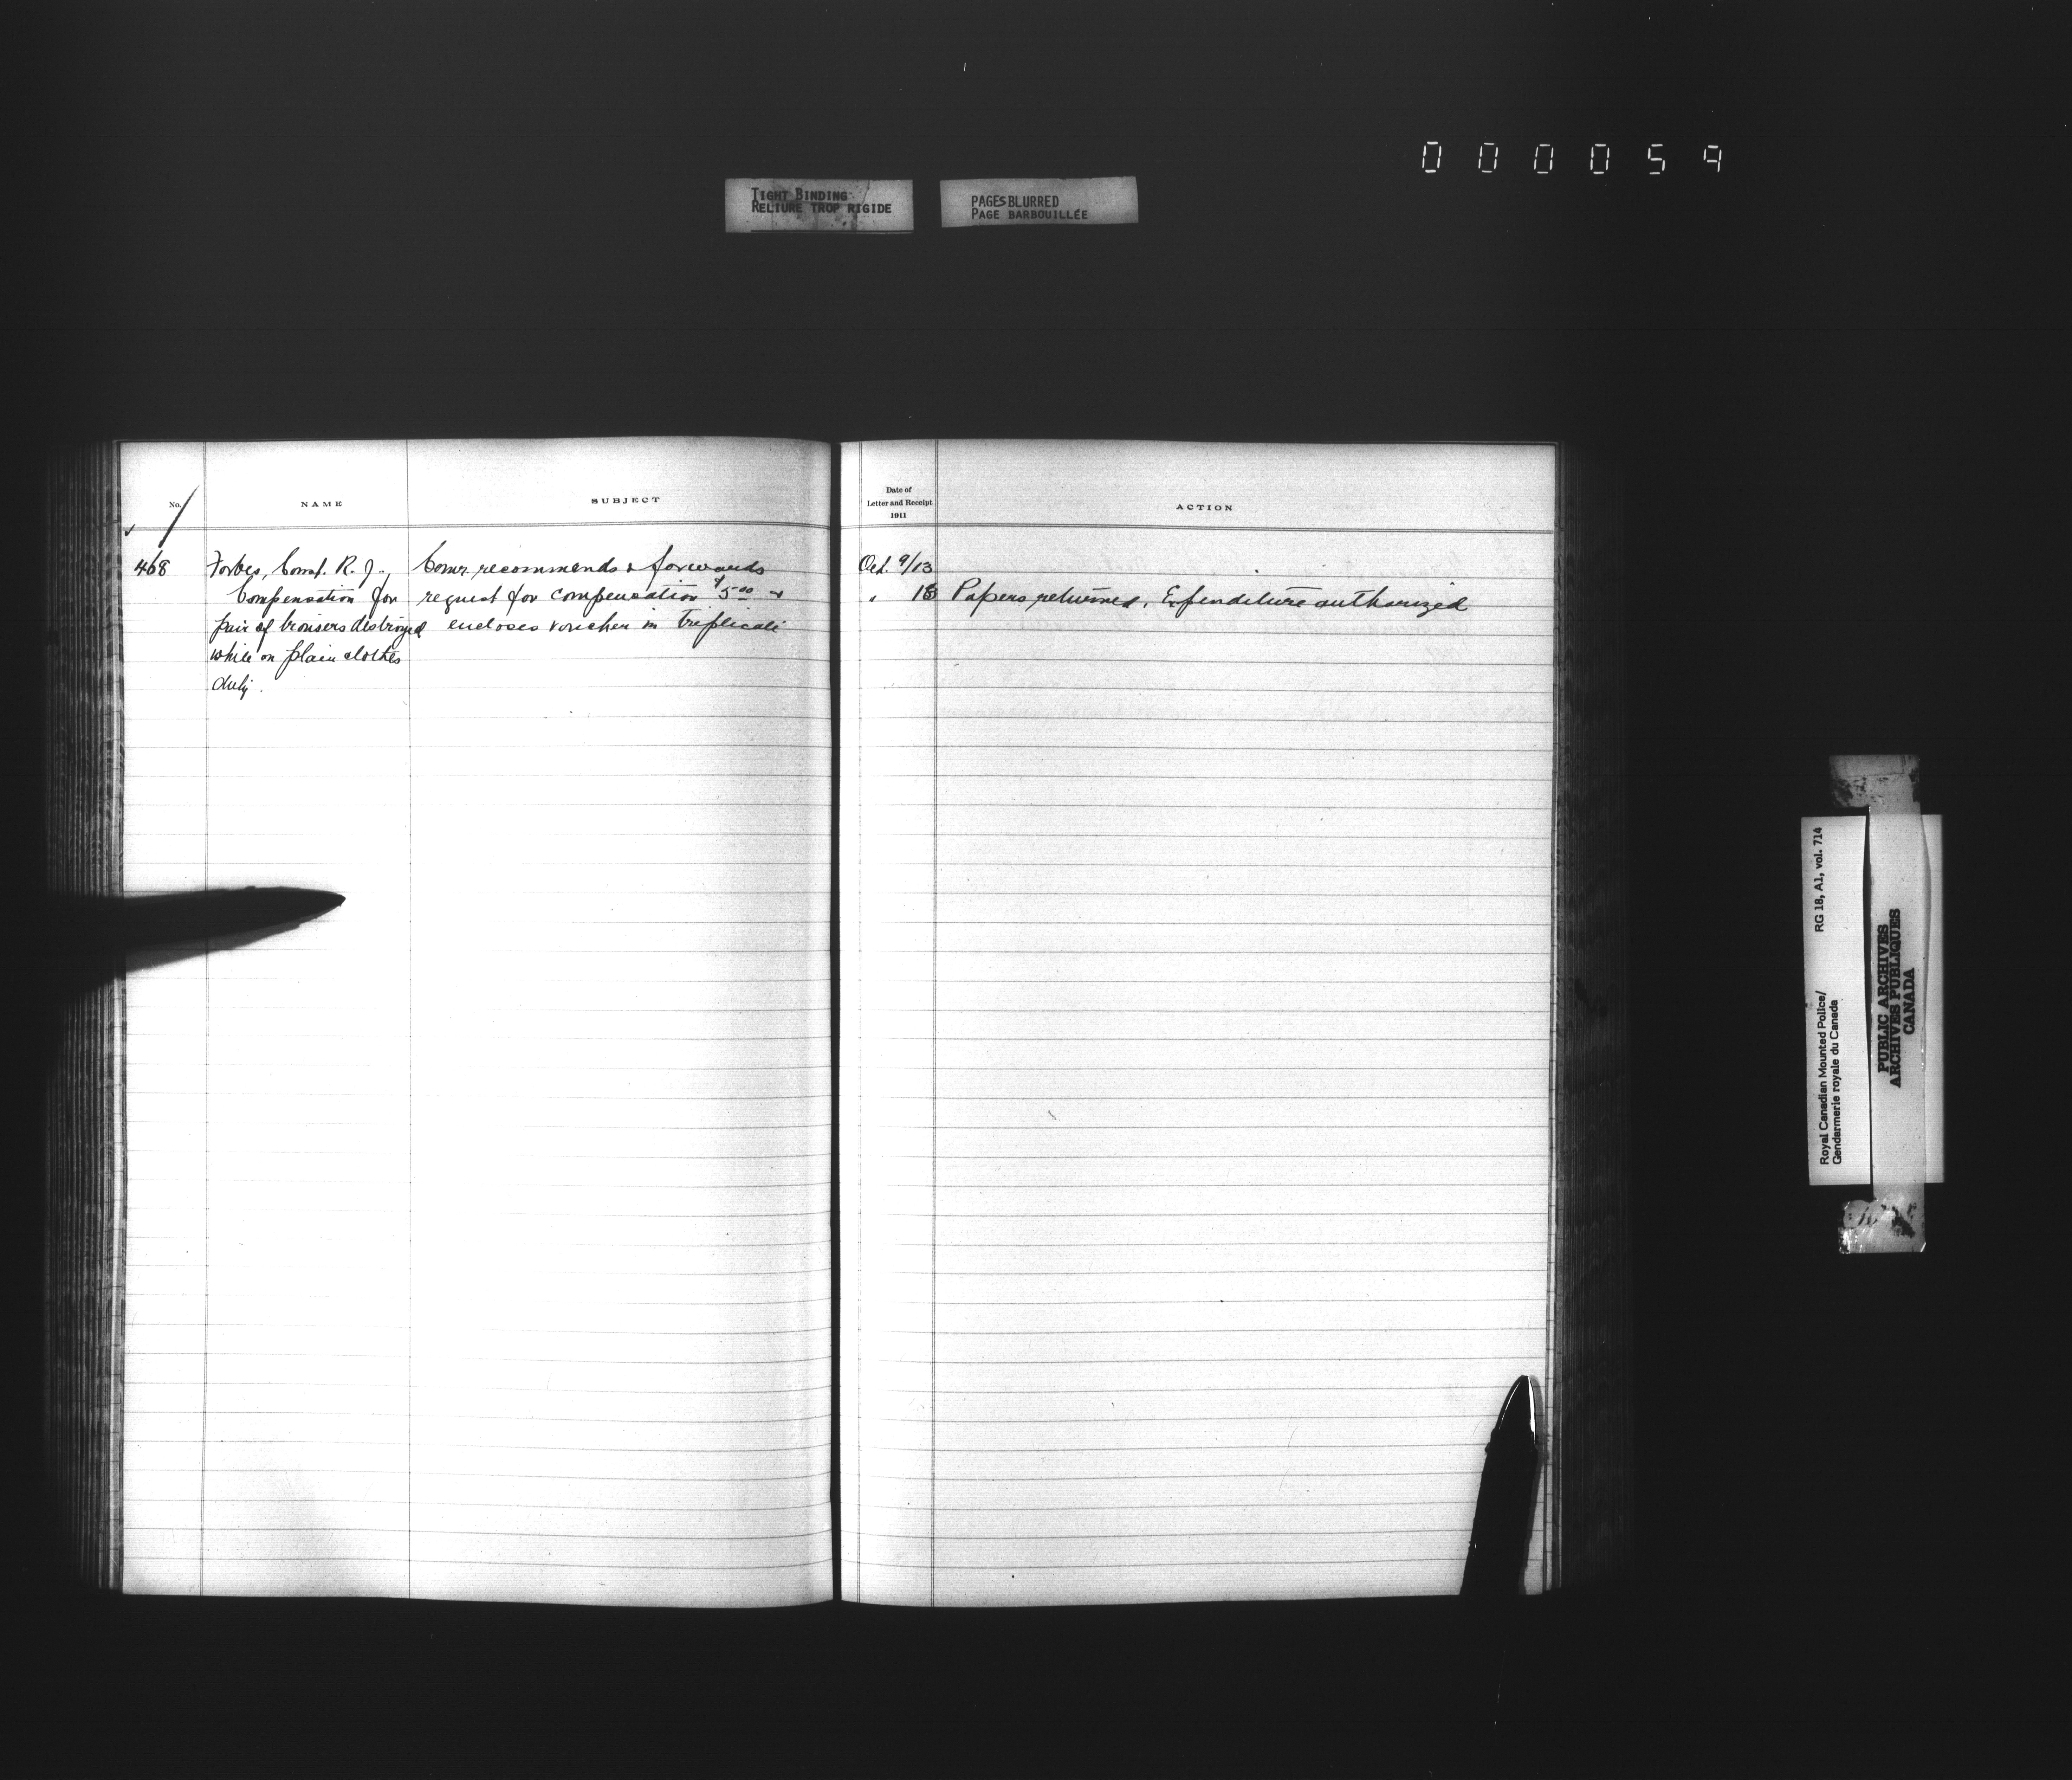 000059
TIGHT BINDING
RELIURE TROP RIGIDE
PAGES BLURRED
PAGE BARBOUILLÉE
No.
NAME
SUBJECT
468
Forbes, Const. R. J.,
Compensation for
pair of trousers destroyed
while on plain clothes
duty.
Comr. recommends & forwards
request for compensation $5.00 &
encloses voucher in triplicate
Date of
Letter and Receipt
1911
ACTION
Oct. 9/13
" 13 Papers returned, Expenditure authorized
Royal Canadian Mounted Police/
Gendarmerie royale du Canada
RG 18, A1, vol. 714
PUBLIC ARCHIVES
ARCHIVES PUBLIQUES
CANADA